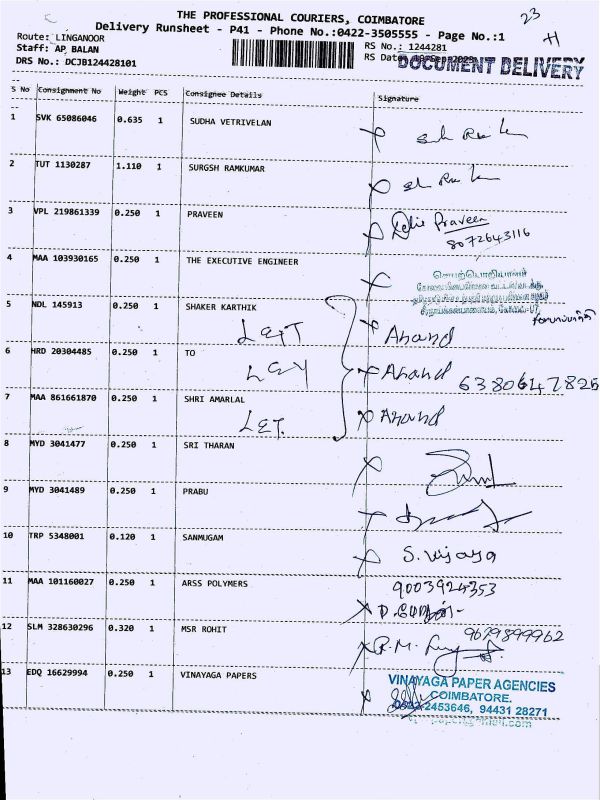 THE PROFESSIONAL COURIERS, COIMBATORE
23
Delivery Runsheet - P41 - Phone No.:0422-3505555 - Page No.:1
Route: LINGANOOR
RS No.: 1244281
Staff: AP BALAN
RS Date:
DOCUMENT DELIVERY
DRS No.: DCJB124428101
S No Consignment No Weight PCS Consignee Details Signature
1 SVK 65086046 0.635 1 SUDHA VETRIVELAN
2 TUT 1130287 1.110 1 SURGSH RAMKUMAR
3 VPL 219861339 0.250 1 PRAVEEN Praveen
8072643116
4 MAA 103930165 0.250 1 THE EXECUTIVE ENGINEER
5 NDL 145913 0.250 1 SHAKER KARTHIK Anand
6 HRD 20304485 0.250 1 TO Anand 6380647826
7 MAA 861661870 0.250 1 SHRI AMARLAL LET. Anand
8 MYD 3041477 0.250 1 SRI THARAN
9 MYD 3041489 0.250 1 PRABU
10 TRP 5348001 0.120 1 SANMUGAM S. Vijaya
11 MAA 101160027 0.250 1 ARSS POLYMERS 9003924353
12 SLM 328630296 0.320 1 MSR ROHIT R.M. 9679899962
13 EDQ 16629994 0.250 1 VINAYAGA PAPERS
VINAYAGA PAPER AGENCIES
COIMBATORE.
0422 2453646, 94431 28271